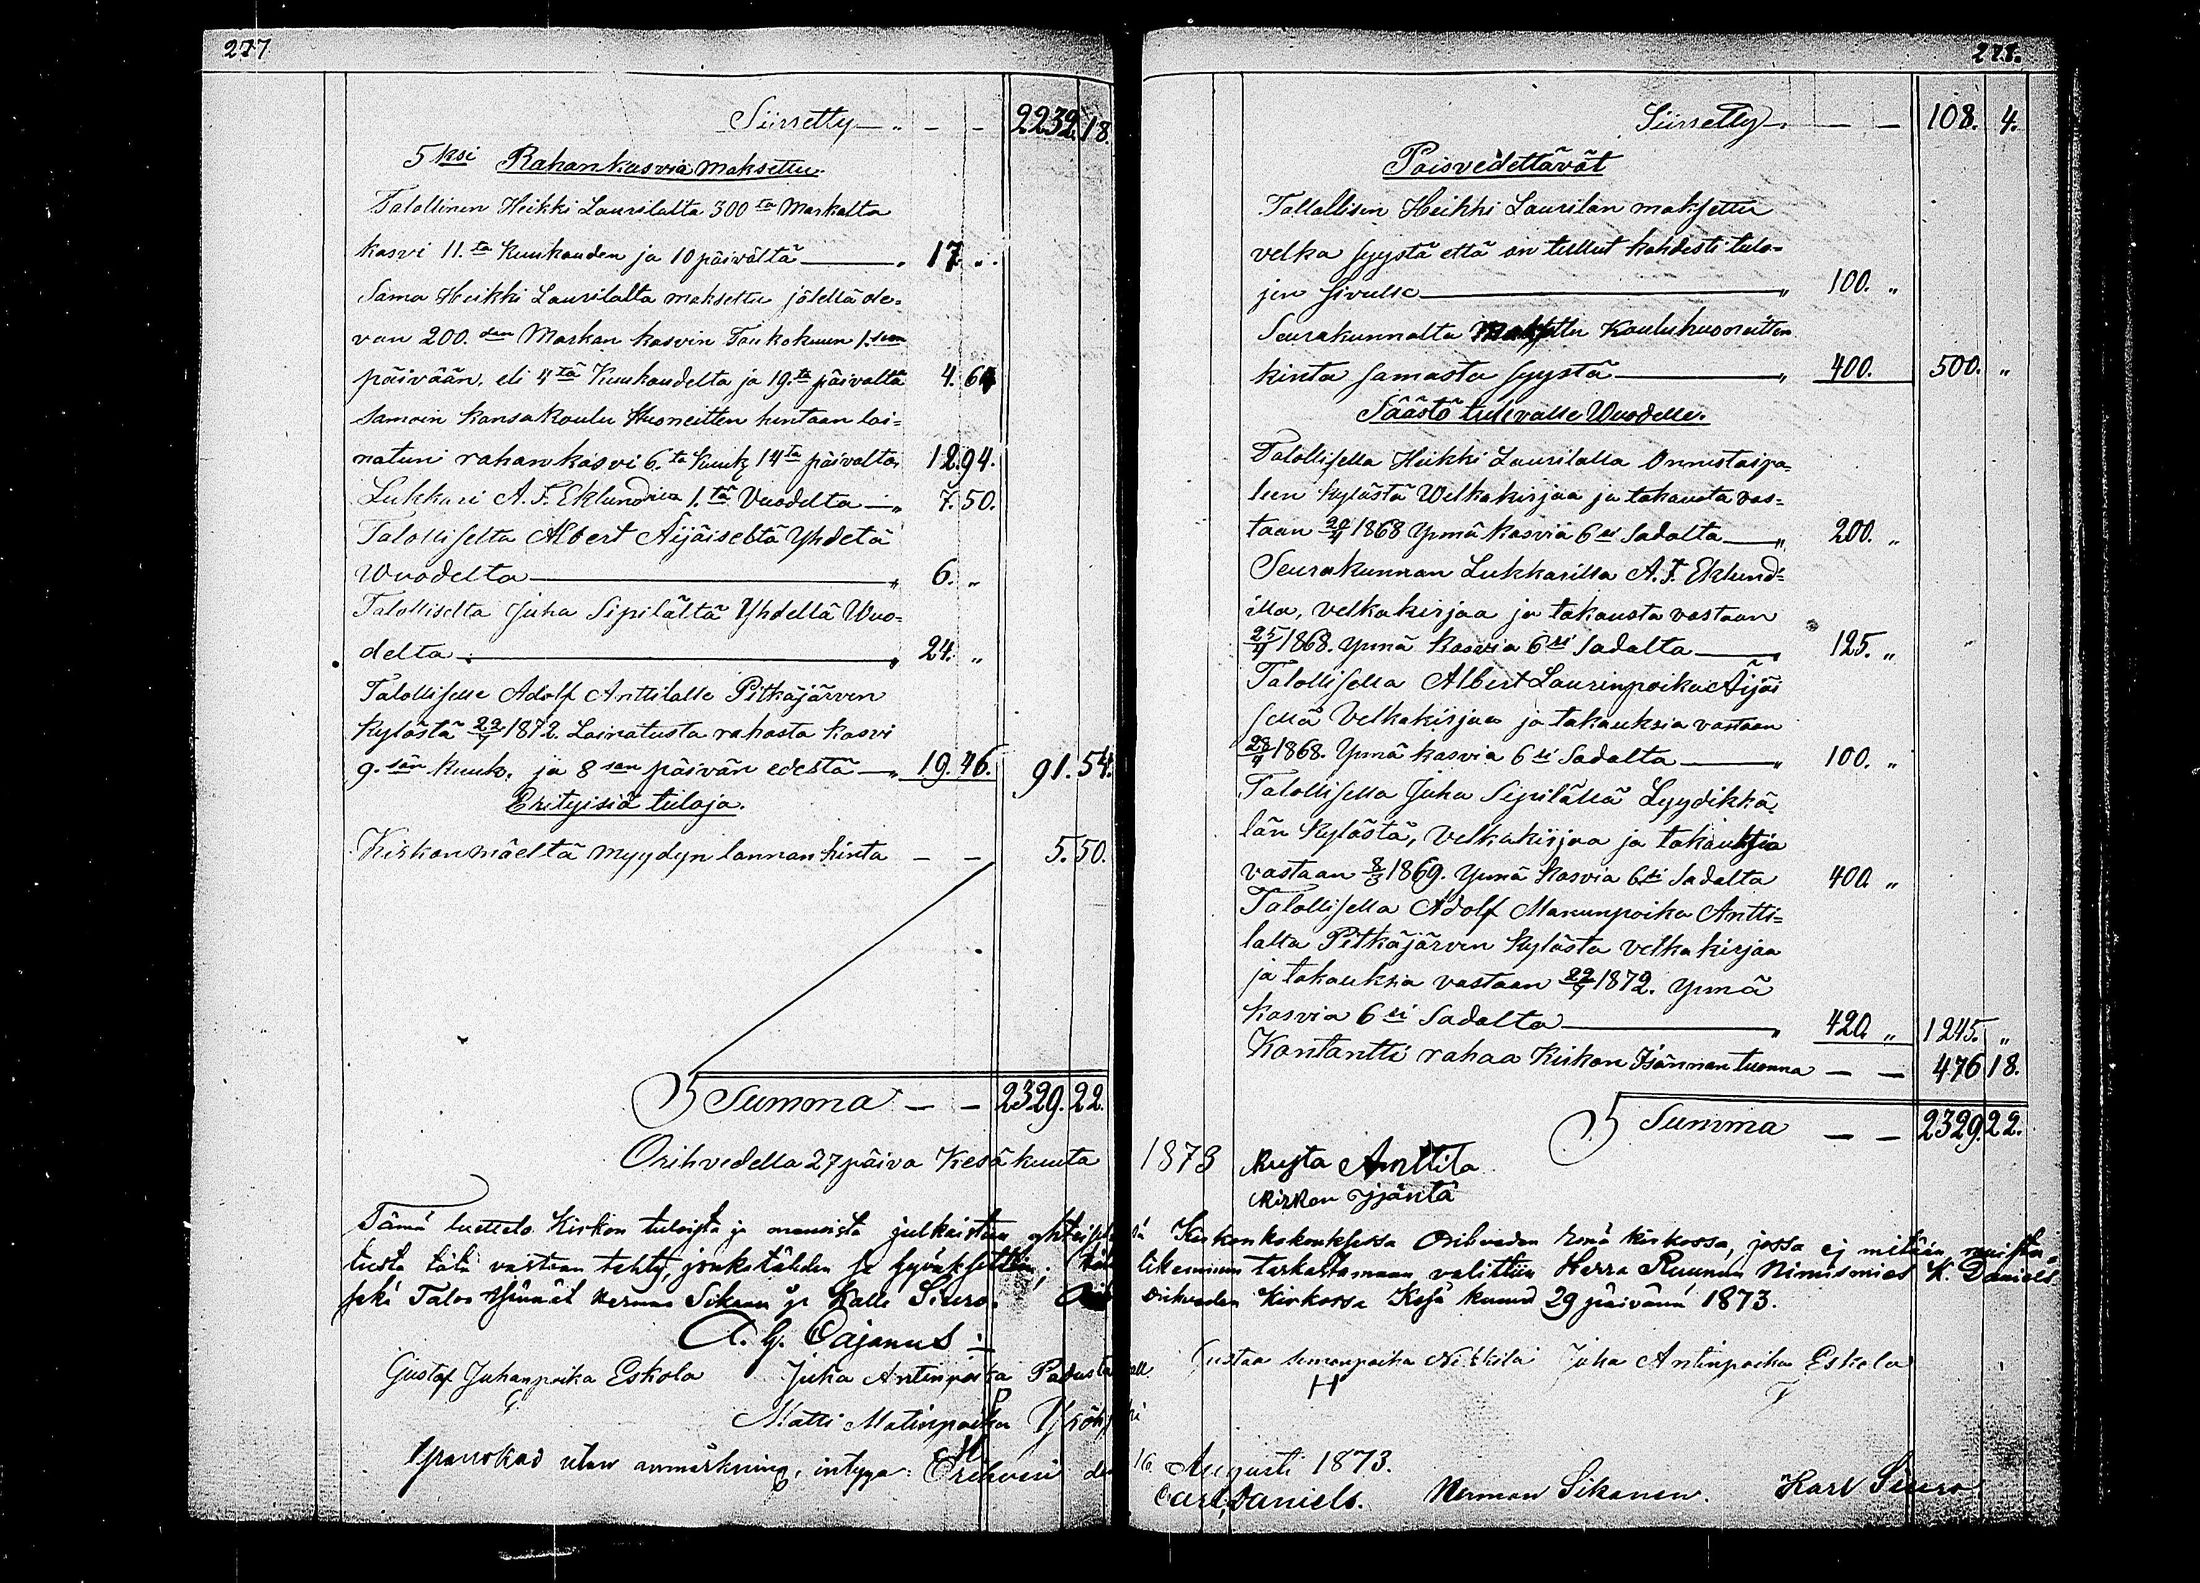 277
Siirretty — „ — — 2232. 18.
5ksi Rahankasvia maksettu.
Talollinen Heikki Laurilalta 300ta Markalta
kasvi 11.ta Kuukauden ja 10 päivältä — „ 17. „
Sama Heikki Laurilalta maksettu jälellä ole-
van 200.den Markan kasvin Toukokuun 1.sen
päivään, eli 4tä Kuukaudelta ja 19.ta päivältä 4. 64
Samoin Kansakoulu Huoneitten hintaan lai-
natun rahan kasvi 6.ta Kuuk 14ta päivalta 12. 94.
Lukkari A. F. Eklundilta 1.tä Vuodelta — „ 7. 50.
Talolliselta Albert Äijäiseltä Yhdetä
Wuodelta — „ 6. „
Talolliselta Juha Sipilältä Yhdeltä Wuo-
delta. — „ 24. „
Talolliselle Adolf Anttilalle Pitkäjärven
Kylästä 22/7 1872. Lainatusta rahasta kasvi
9.sän Kuuk. ja 8san päivän edestä — „ 19. 46. 91. 54.
Erityisiä tuloja.
Kirkonmäeltä myydyn lannan hinta — — 5. 50.
Summa — — 2329. 22.
Orihvedella 27 päiva Kesäkuuta
278.
Siirretty — — — 108. 4.
Poisvedettävät
Tallollisen Heikki Laurilan maksettu
velka syystä että on tullut kahdesti tulo-
jen sivulle — „ 100. „
Seurakunnalta Maksettu Kouluhuoneitten
hinta samasta syystä — „ 400. 500. „
Säästö tulevalle Wuodelle.
Talollisella Heikki Laurilalla Onnistaipa-
leen kylästä Welkakirjaa ja takausta vas-
taan 20/4 1868 Ynnä kasvia 6si Sadalta — „ 200. „
Seurakunnan Lukkarilla A. F. Eklund-
illa, velkakirjaa ja takausta vastaan
25/4 1868. Ynnä Kasvia 6si Sadalta — „ 125. „
Talollisella Albert Laurinpoika Äijäi
sellä Velkakirjaa ja takauksia vastaan
28/4 1868. Ynnä kasvia 6si Sadalta — „ 100. „
Talollisella Juha Sipilällä Lyydikkä-
län Kylästä, Velkakirjaa ja takauksia
vastaan 8/3 1869. Ynnä Kasvia 6si Sadalta 400. „
Talollisella Adolf Manunpoika Antti-
lalta Pitkäjärven Kylästa velkakirjaa
ja takauksia vastaan 22/7 1872. Ynnä
kasvia 6si Sadalta — „ 420. „ 1245. „
Kontantti rahaa Kirkon Isännan tuonna — — 476 18.
Summa — — 2329. 22.
1873 Kusta Anttila
Kirkon Isäntä
Tämä luettelo Kirkon tuloista ja menoista julkaistiin
Kirkonkokouksessa Orihveden Emä kirkossa, jossa ej mitään muistu-
tusta tätä vastaan tehty, jonkatähden se hyväksyttiin.
likemmin tarkastamaan valittiin Herra Ruunun Nimismies K. Daniels
sekä Talon Isännät Herman Sikanen ja Kalle Siuro.
Orihveden Kirkossa Kesä kuun 29 päivänä 1873.
A. G. Cajanus
Gustaf Juhanpoika Eskola Juha Antinpoika
Kustaa Simonpoika Nikkilä Juha Antinpoika Eskola
Matti Matinpoika
Granskad utan anmärkning, intygar. Orihvesi den 16 Augusti 1873.
Carl Daniels. Herman Sikanen. Karl Siuro